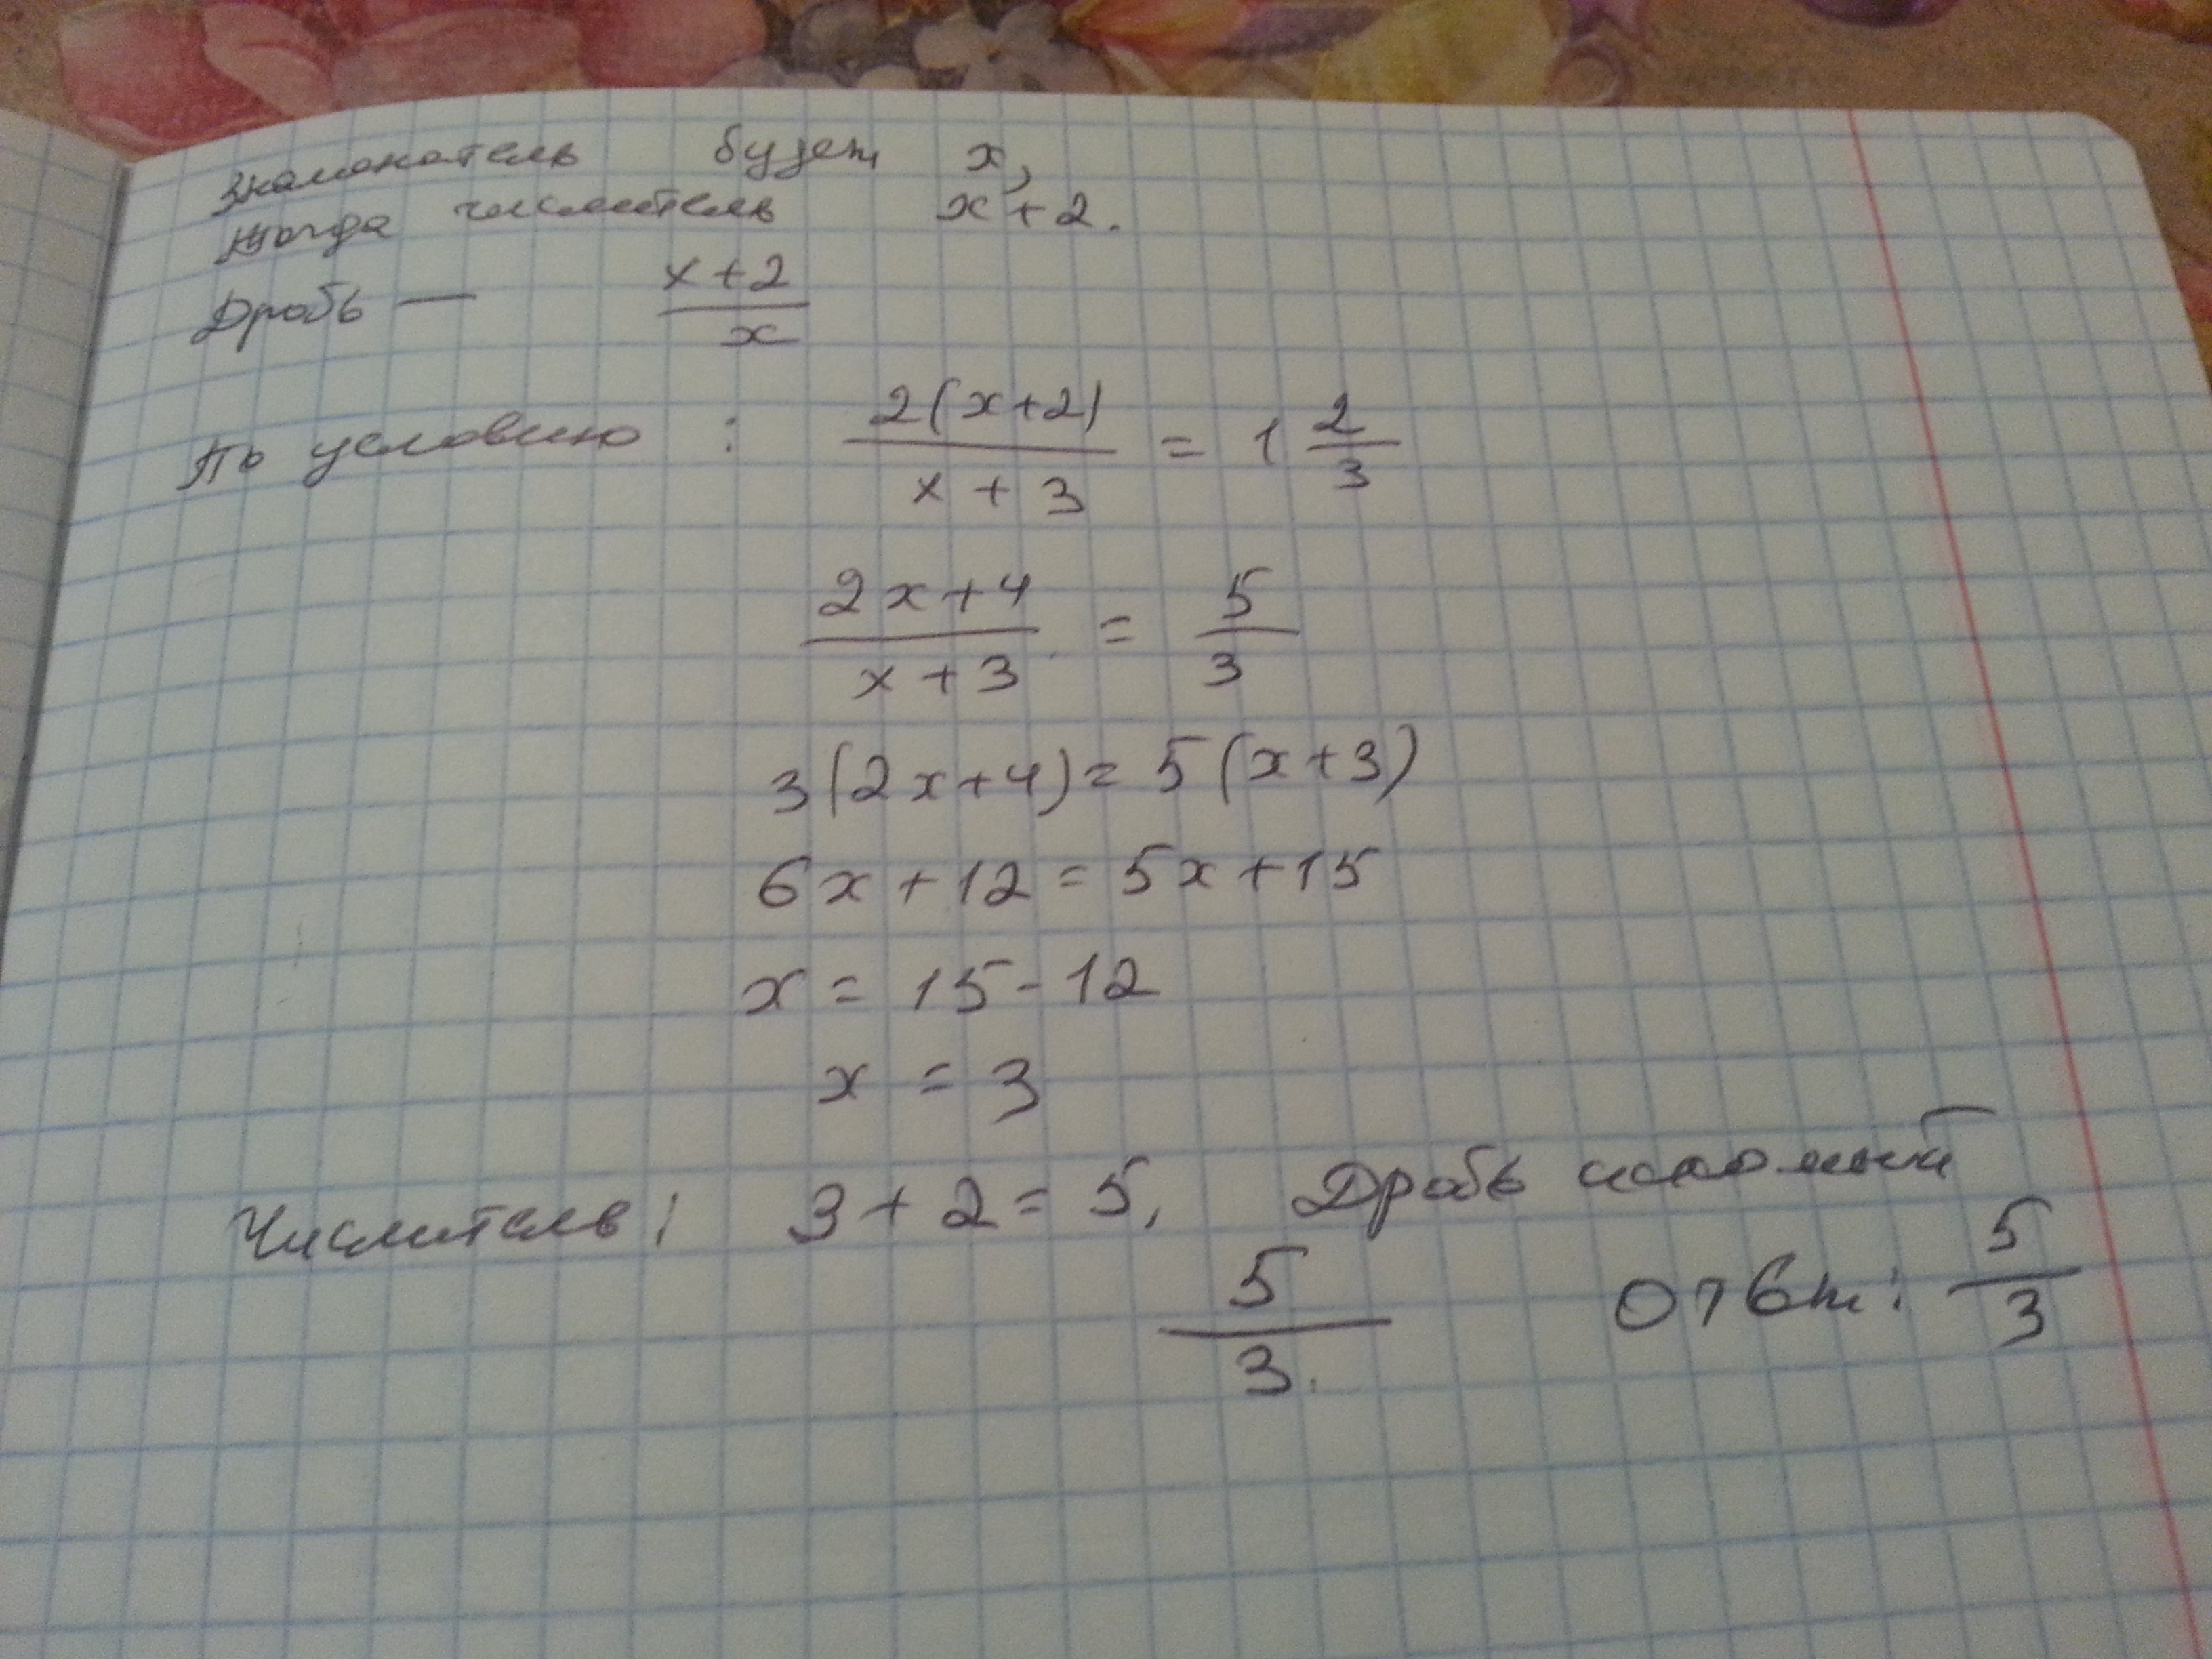 Знаменатель будет x,
тогда числитель x+2.
Дробь — \frac{x+2}{x}
По условию : \frac{2(x+2)}{x+3} = 1\frac{2}{3}
\frac{2x+4}{x+3} = \frac{5}{3}
3(2x+4)=5(x+3)
6x+12=5x+15
x = 15-12
x = 3
Числитель: 3+2=5, Дробь искомый
\frac{5}{3}. Ответ: \frac{5}{3}